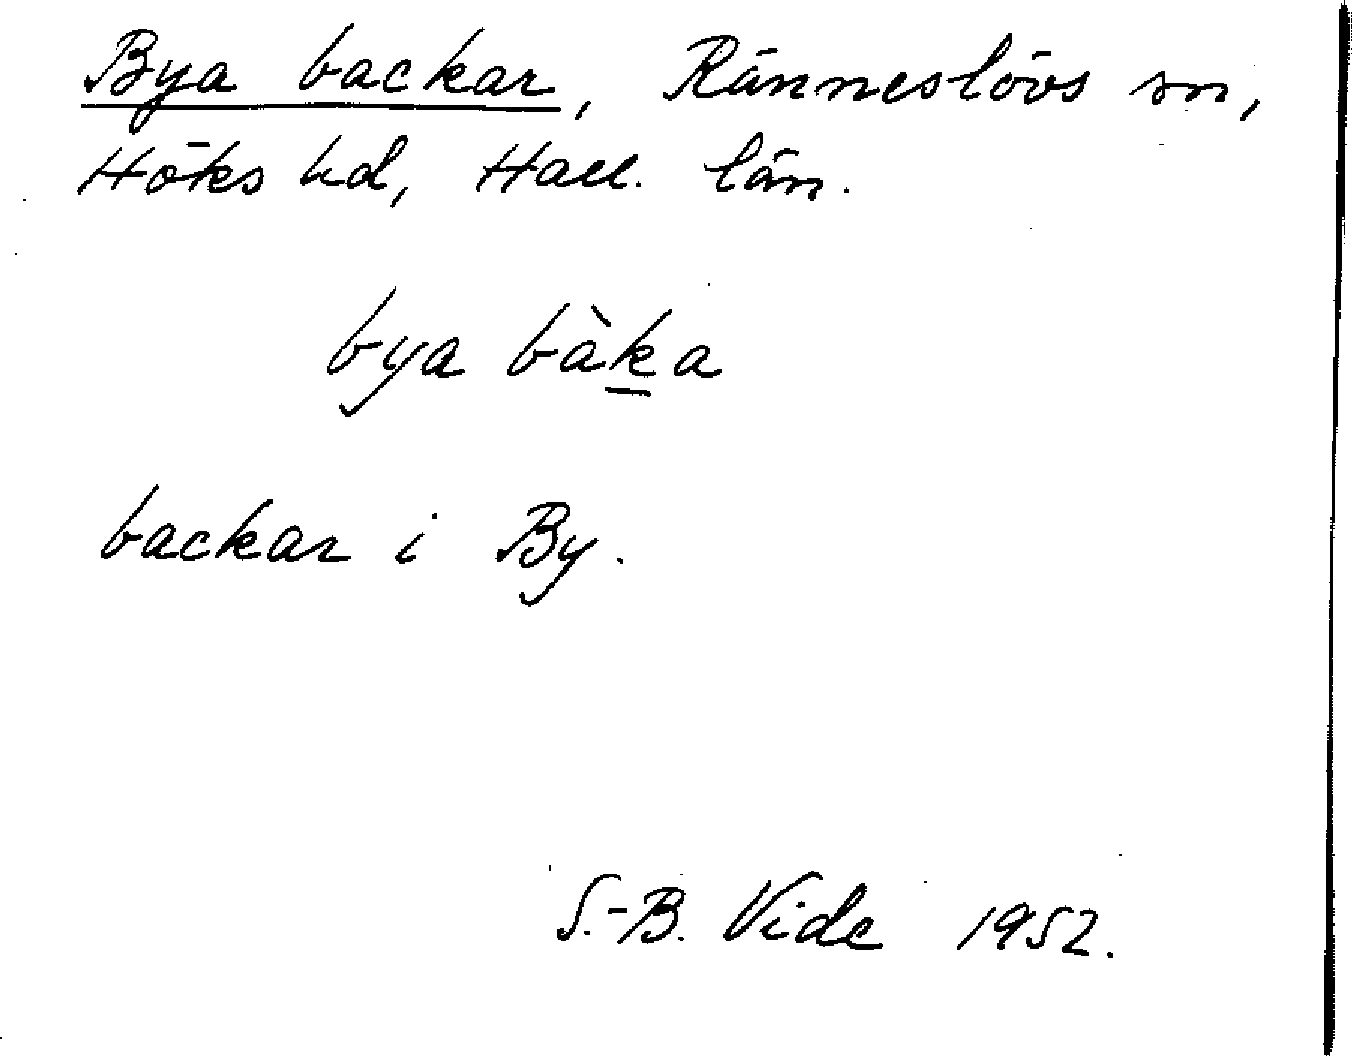 Bya backar, Ränneslövs sn,
Höks hd, Hall. län.
bya bàka
backar i By.
S.-B. Vide 1952.